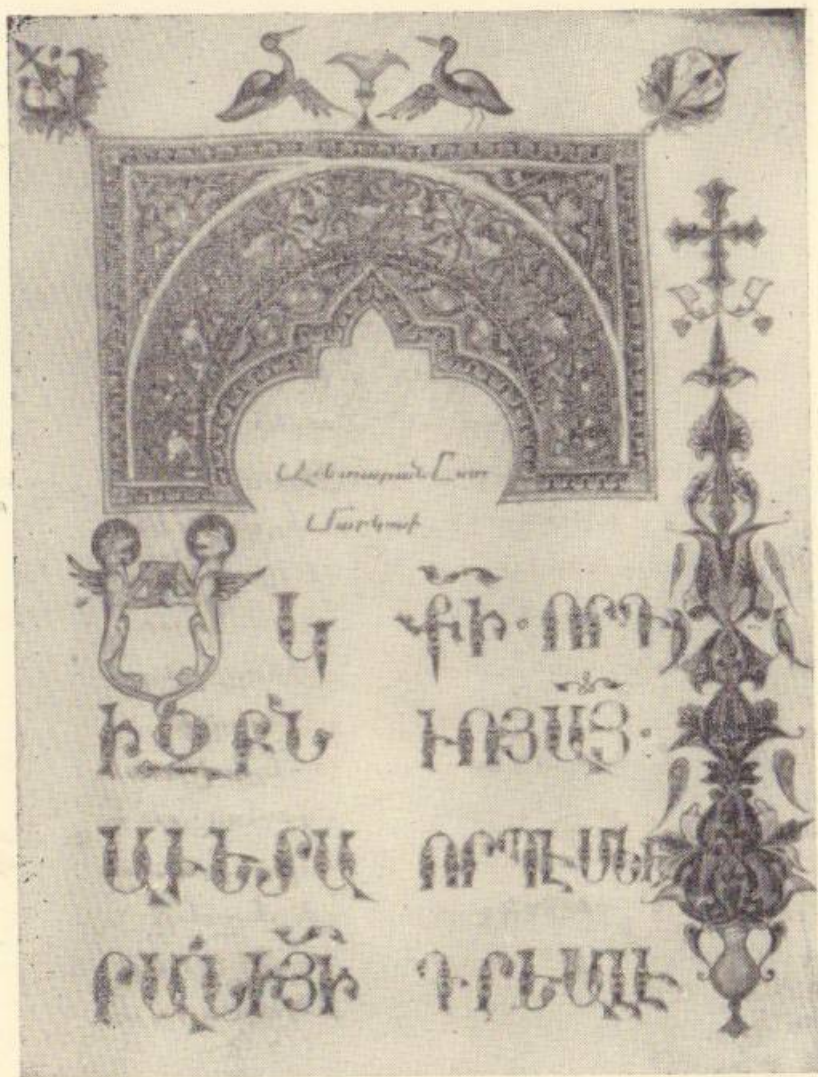 Աւետարան Ըստ
Մարկոսի
ՍԿ
ԻԶԲՆ
ԱՒԵՏԱ
ՐԱՆԻ ՅԻ
ՔԻ· ՈՐԴ
ՒՈՅ ԱՅ·
ՈՐՊԷՍ ԵՒ
ԳՐԵԱԼ Է